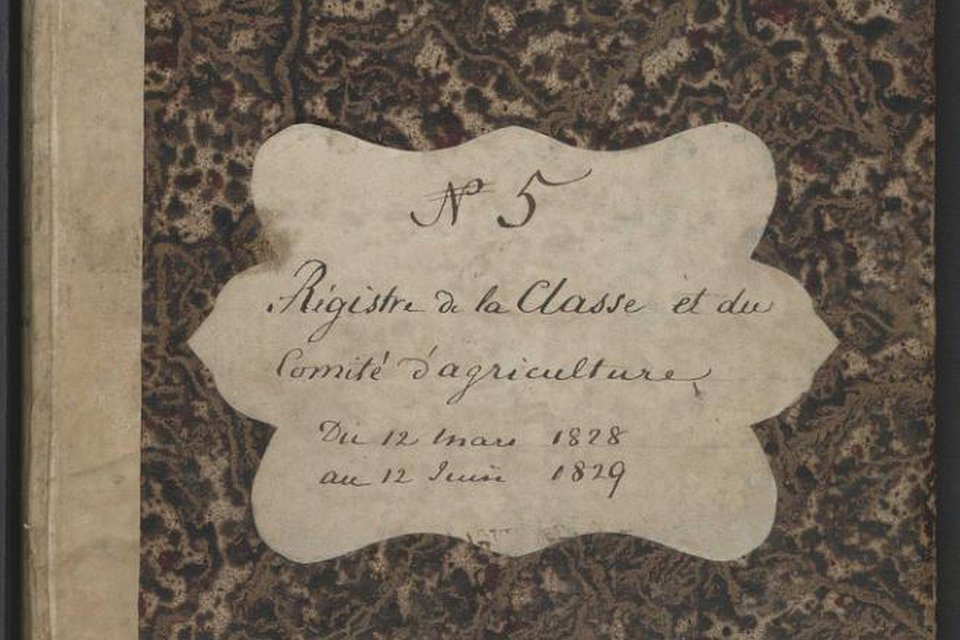 N° 5
Régistre de la Classe et du
Comité d'agriculture,
Du 12 mars 1828
au 12 Juin 1829